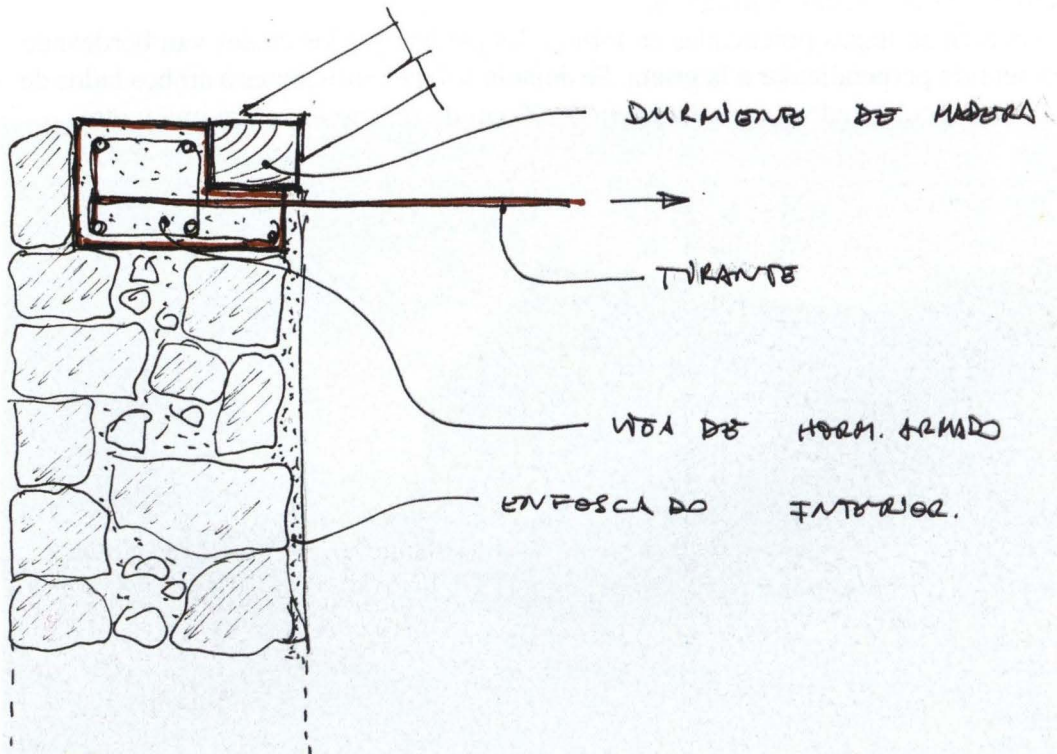 DURMIENTE DE MADERA
TIRANTE
VIGA DE HORM. ARMADO
ENFOSCADO INTERIOR.